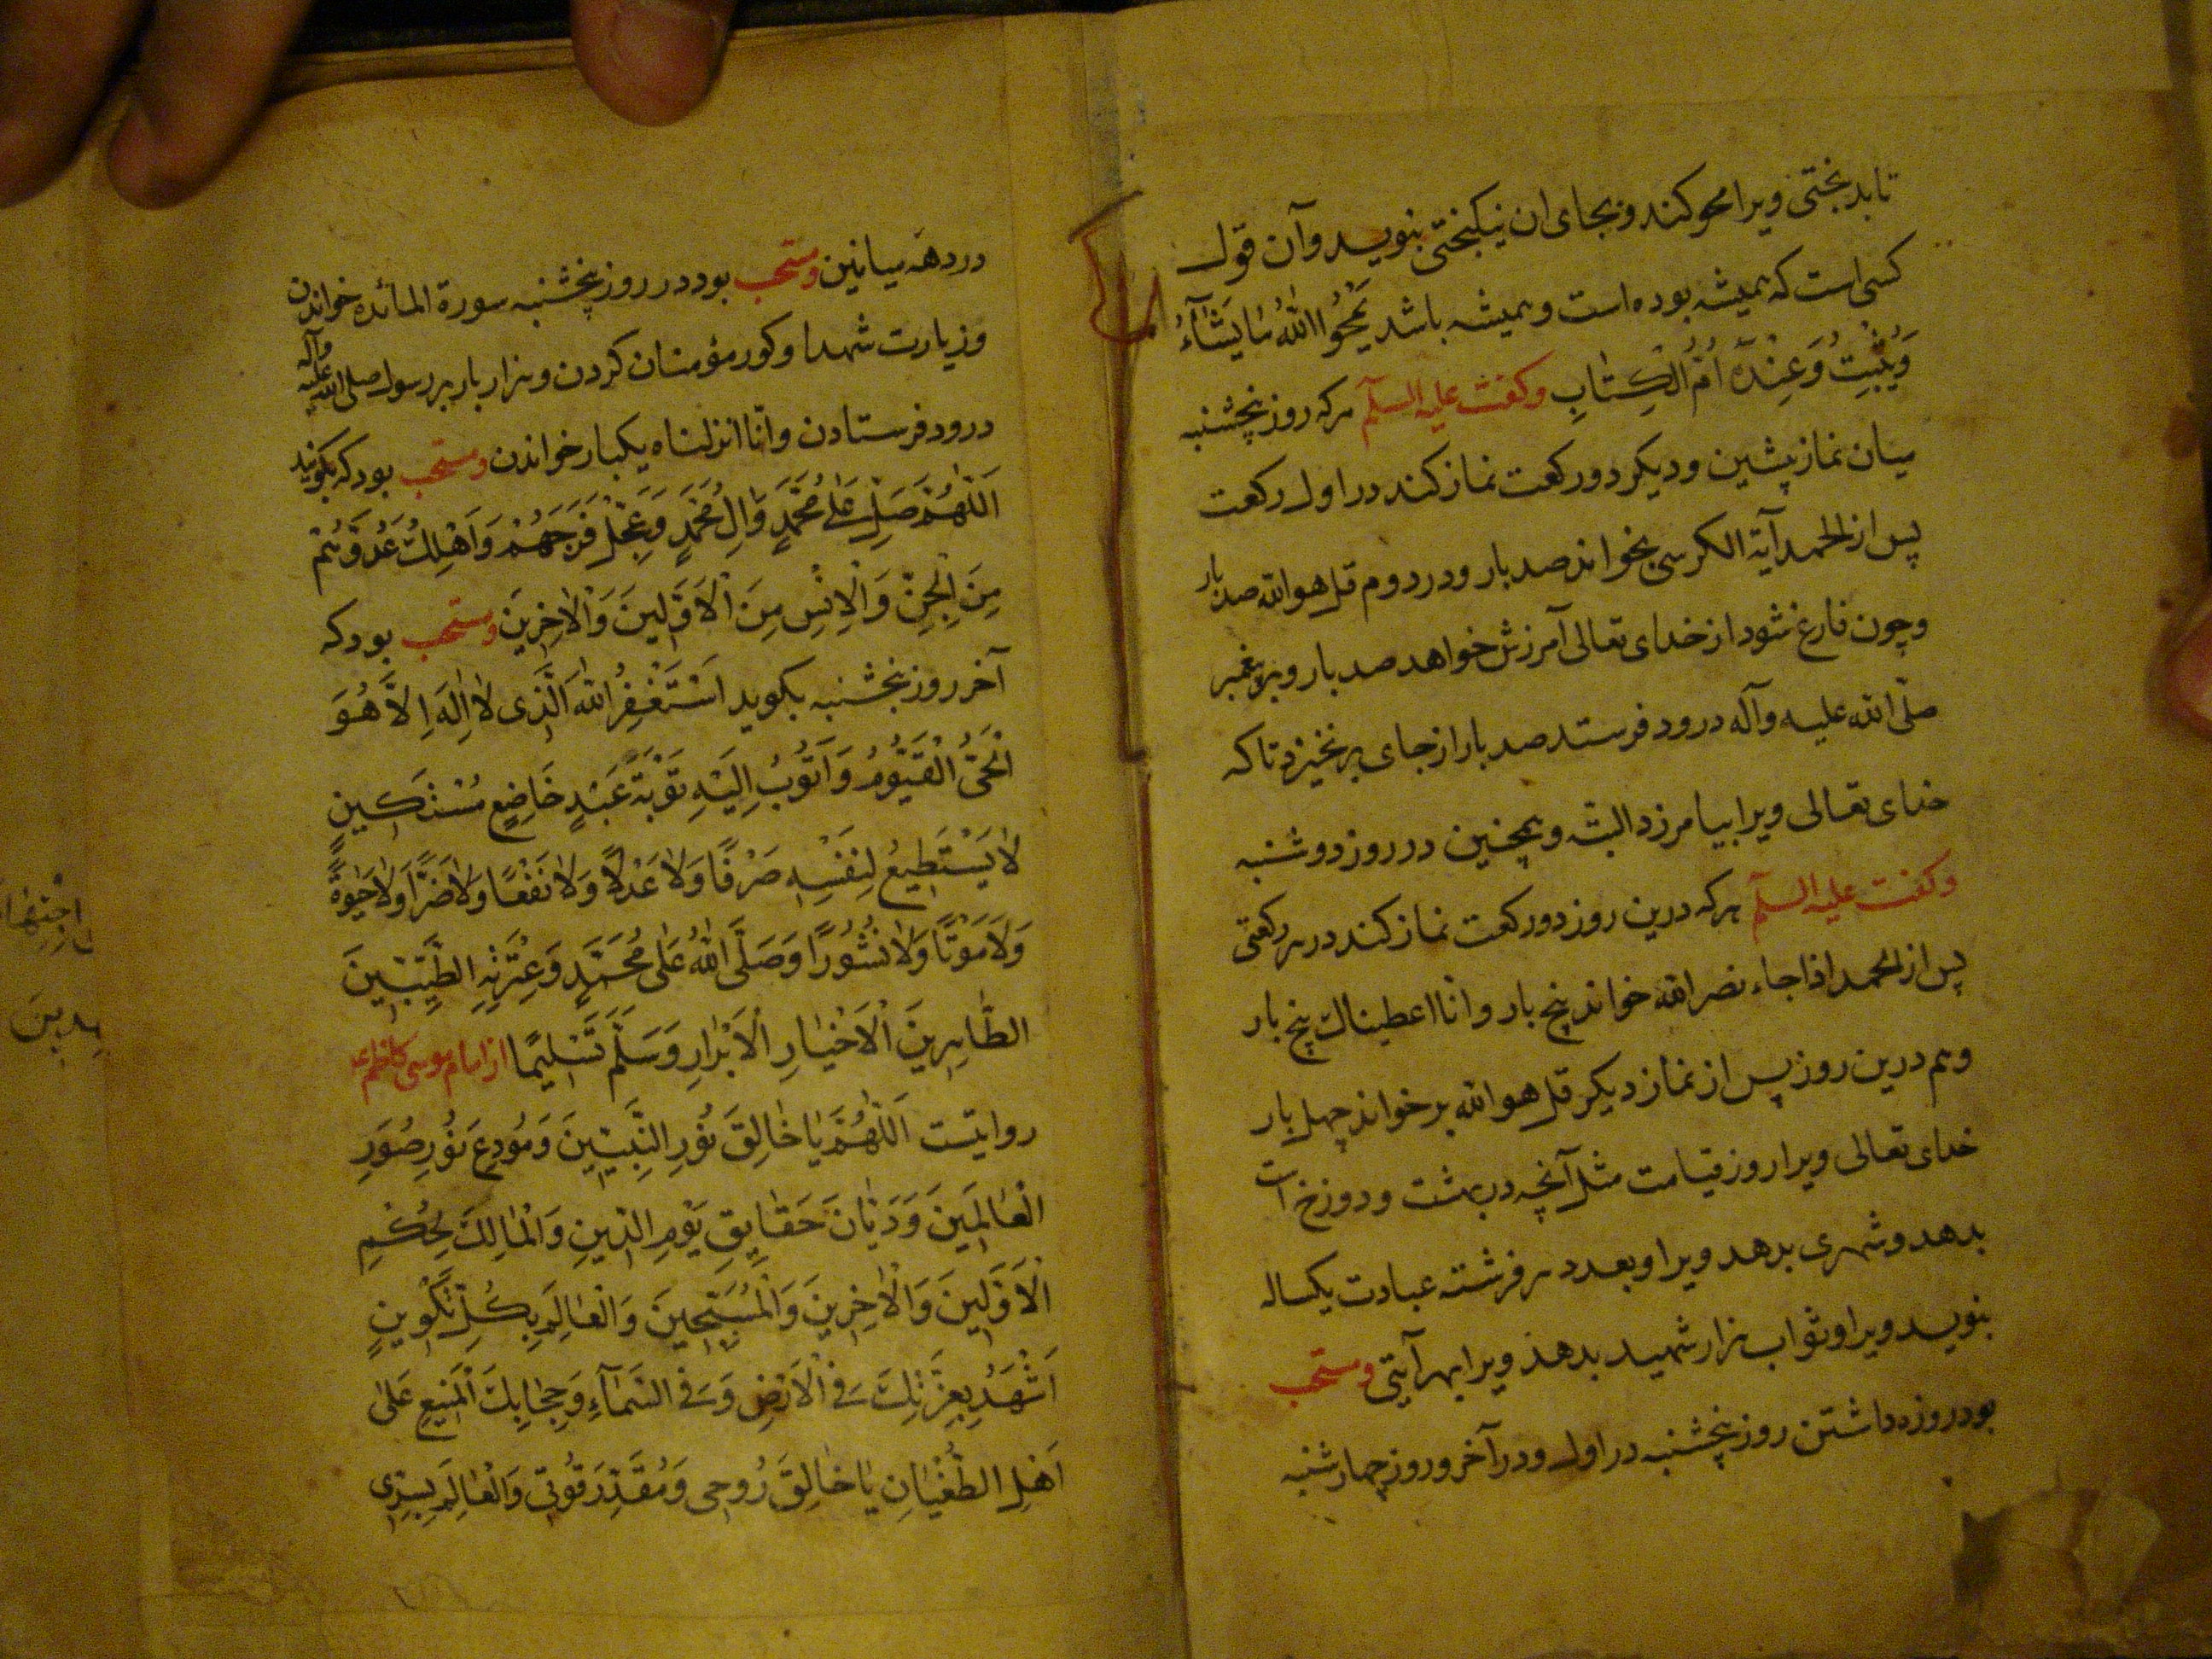 تا بدبختی ویرا محو کند و بجای ان نیکبختی بنویسد و آن قول
کسی است که همیشه بوده است و همیشه باشد یَمْحُوا اللّٰهُ مٰا یَشٰآءُ
وَیُثْبِتُ وَعِنْدَهُ اُمُّ الْکِتٰابِ وکفت علیه السلم هرکه روز پنچشنبه
میان نماز پیشین و دیکر دو رکعت نماز کند در اول رکعت
پس از الحمد آیة الکرسی بخواند صد بار و در دوم قل هو الله صد بار
و چون فارغ شود از خدای تعالی آمرزش خواهد صد بار و بر پیغمبر
صلّی الله علیه وآله درود فرستد صد بار از جای برنخیزد تا که
خدای تعالی ویرا بیامرزد البته و همچنین در روز دوشنبه
وکفت علیه السلم هرکه درین روز دو رکعت نماز کند در هر رکعتی
پس از الحمد اذا جاء نصر الله خواند پنج بار و انا اعطیناک پنج بار
و هم درین روز پس از نماز دیکر قل هو الله برخواند چهل بار
خدای تعالی ویرا روز قیامت مثل آنچه در بهشت و دوزخ است
بدهد و شهری بدهد ویرا و بعدد هر فرشته عبادت یکساله
بنویسد ویرا و ثواب هزار شهید بدهذ ویرا بهر آیتی ومستحب
بود روزه داشتن روز پنچشنبه در اول و در آخر و روز چهارشنبه
در دهه میانین ومستحب بود در روز پنچشنبه سورة المائده خواندن
و زیارت شهدا و کور مؤمنان کردن و هزار بار بر رسول صلی الله علیه وآله
درود فرستادن و انّا انزلناه یکبار خواندن ومستحب بود که بکویند
اَللّٰهُمَّ صَلِّ عَلٰی مُحَمَّدٍ وَاٰلِ مُحَمَّدٍ وَعَجِّلْ فَرَجَهُمْ وَاَهْلِکْ عَدُوَّهُمْ
مِنَ الْجِنِّ وَالْاِنْسِ مِنَ الْاَوَّلینَ وَالْاٰخِرینَ ومستحب بود که
آخر روز پنچشنبه بکوید اَسْتَغْفِرُ اللّٰهَ الَّذی لاٰ اِلٰهَ اِلاَّ هُوَ
الْحَیُّ الْقَیُّومُ وَاَتُوبُ اِلَیْهِ تَوْبَةَ عَبْدٍ خَاضِعٍ مِسْکینٍ
لاٰ یَسْتَطیعُ لِنَفْسِهِ صَرْفًا وَلاٰ عَدْلاً وَلاٰ نَفْعًا وَلاٰ ضَرًّا وَلاٰ حَیٰوةً
وَلاٰ مَوْتًا وَلاٰ نُشُورًا وَصَلَّی اللّٰهُ عَلٰی مُحَمَّدٍ وَعِتْرَتِهِ الطَّیِّبینَ
الطّٰاهِرینَ الْاَخْیٰارِ الْاَبْرٰارِ وَسَلَّمَ تَسْلیمًا از امام موسی کاظم ع
روایتست اَللّٰهُمَّ یٰا خٰالِقَ نُورِ النَّبِیّینَ وَمُودِعَ نُورِ صُوَرِ
الْعٰالَمینَ وَدَیّٰانَ حَقٰایِقِ یَوْمِ الدّینِ وَالْمٰالِکَ لِحُکْمِ
الْاَوَّلینَ وَالْاٰخِرینَ وَالْمُسَبِّحینَ وَالْعٰالِمَ بِکُلِّ تَکْوینٍ
اَشْهَدُ بِعِزَّتِکَ فِی الْاَرْضِ وَفِی السَّمٰآءِ وَحِجٰابِکَ الْمَنیعِ عَلٰی
اَهْلِ الطُّغْیٰانِ یٰا خٰالِقَ رُوحی وَمُقَدِّرَ قُوَّتی وَالْعٰالِمَ بِسِرّی